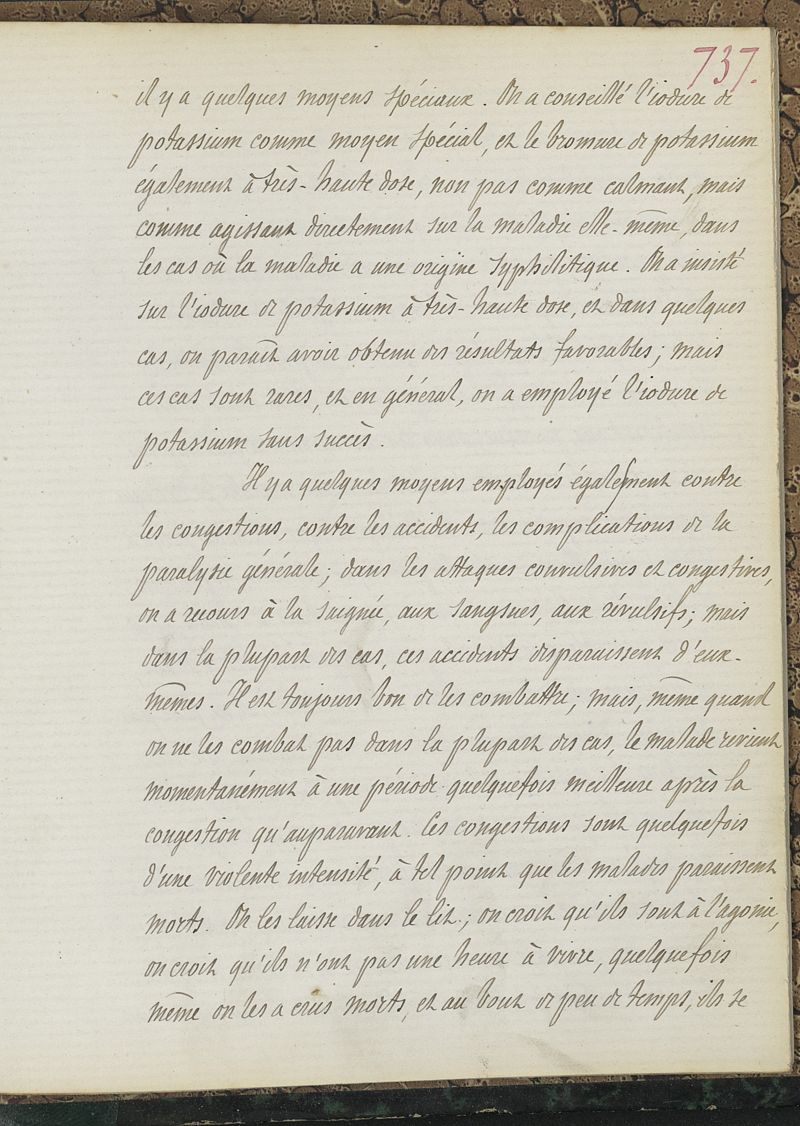 737.
il y a quelques moyens spéciaux. On a conseillé l'iodure de
potassium comme moyen spécial, et le bromure de potassium
également à très-haute dose, non pas comme calmant, mais
comme agissant directement sur la maladie elle-même, dans
les cas où la maladie a une origine syphilitique. On a insisté
sur l'iodure de potassium à très-haute dose, et dans quelques
cas, on paraît avoir obtenu des résultats favorables; mais
ces cas sont rares, et en général, on a employé l'iodure de
potassium sans succès.
Il y a quelques moyens employés également contre
les congestions, contre les accidents, les complications de la
paralysie générale; dans les attaques convulsives et congestives,
on a recours à la saignée, aux sangsues, aux révulsifs; mais
dans la plupart des cas, ces accidents disparaissent d'eux-
mêmes. Il est toujours bon de les combattre; mais, même quand
on ne les combat pas dans la plupart des cas, le malade revient
momentanément à une période quelquefois meilleure après la
congestion qu'auparavant. Ces congestions sont quelquefois
d'une violente intensité, à tel point que les malades paraissent
morts. On les laisse dans le lit; on croit qu'ils sont à l'agonie,
on croit qu'ils n'ont pas une heure à vivre, quelquefois
même on les a crus morts, et au bout de peu de temps, ils se